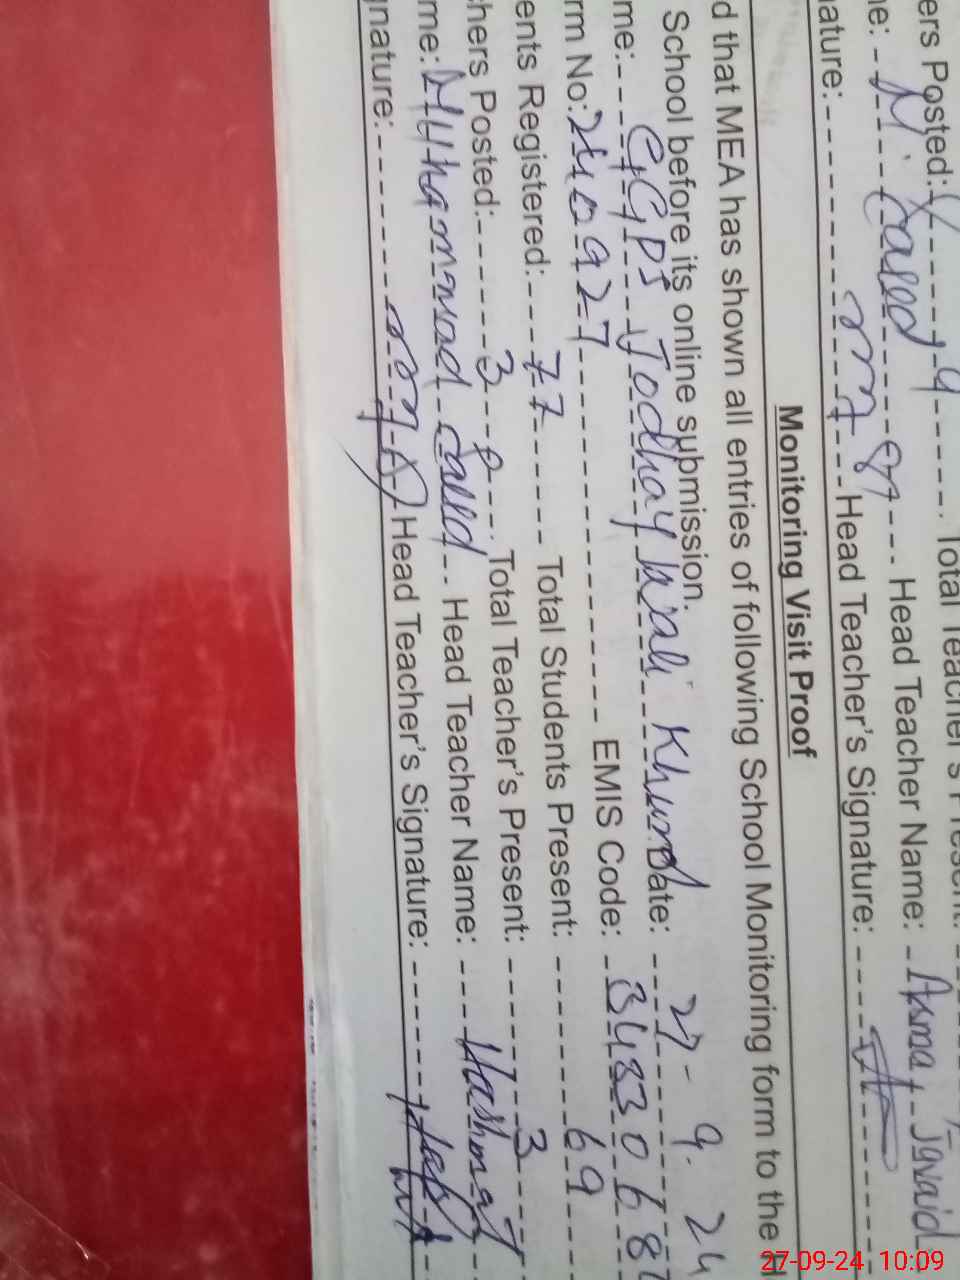 ers Posted: 4 Total Teacher's Present:
ne: M. Saeed Head Teacher Name: Asma Javaid
nature: Head Teacher's Signature:
Monitoring Visit Proof
d that MEA has shown all entries of following School Monitoring form to the H
School before its online submission.
me: GGPS Jodhay Khurd Date: 27-9-24
rm No: 2410927 EMIS Code: 3433068
ents Registered: 77 Total Students Present: 69
hers Posted: 3 Total Teacher's Present: 3
me: Muhammad Saeed Head Teacher Name: Hashmat
gnature: Head Teacher's Signature:
27-09-24 10:09